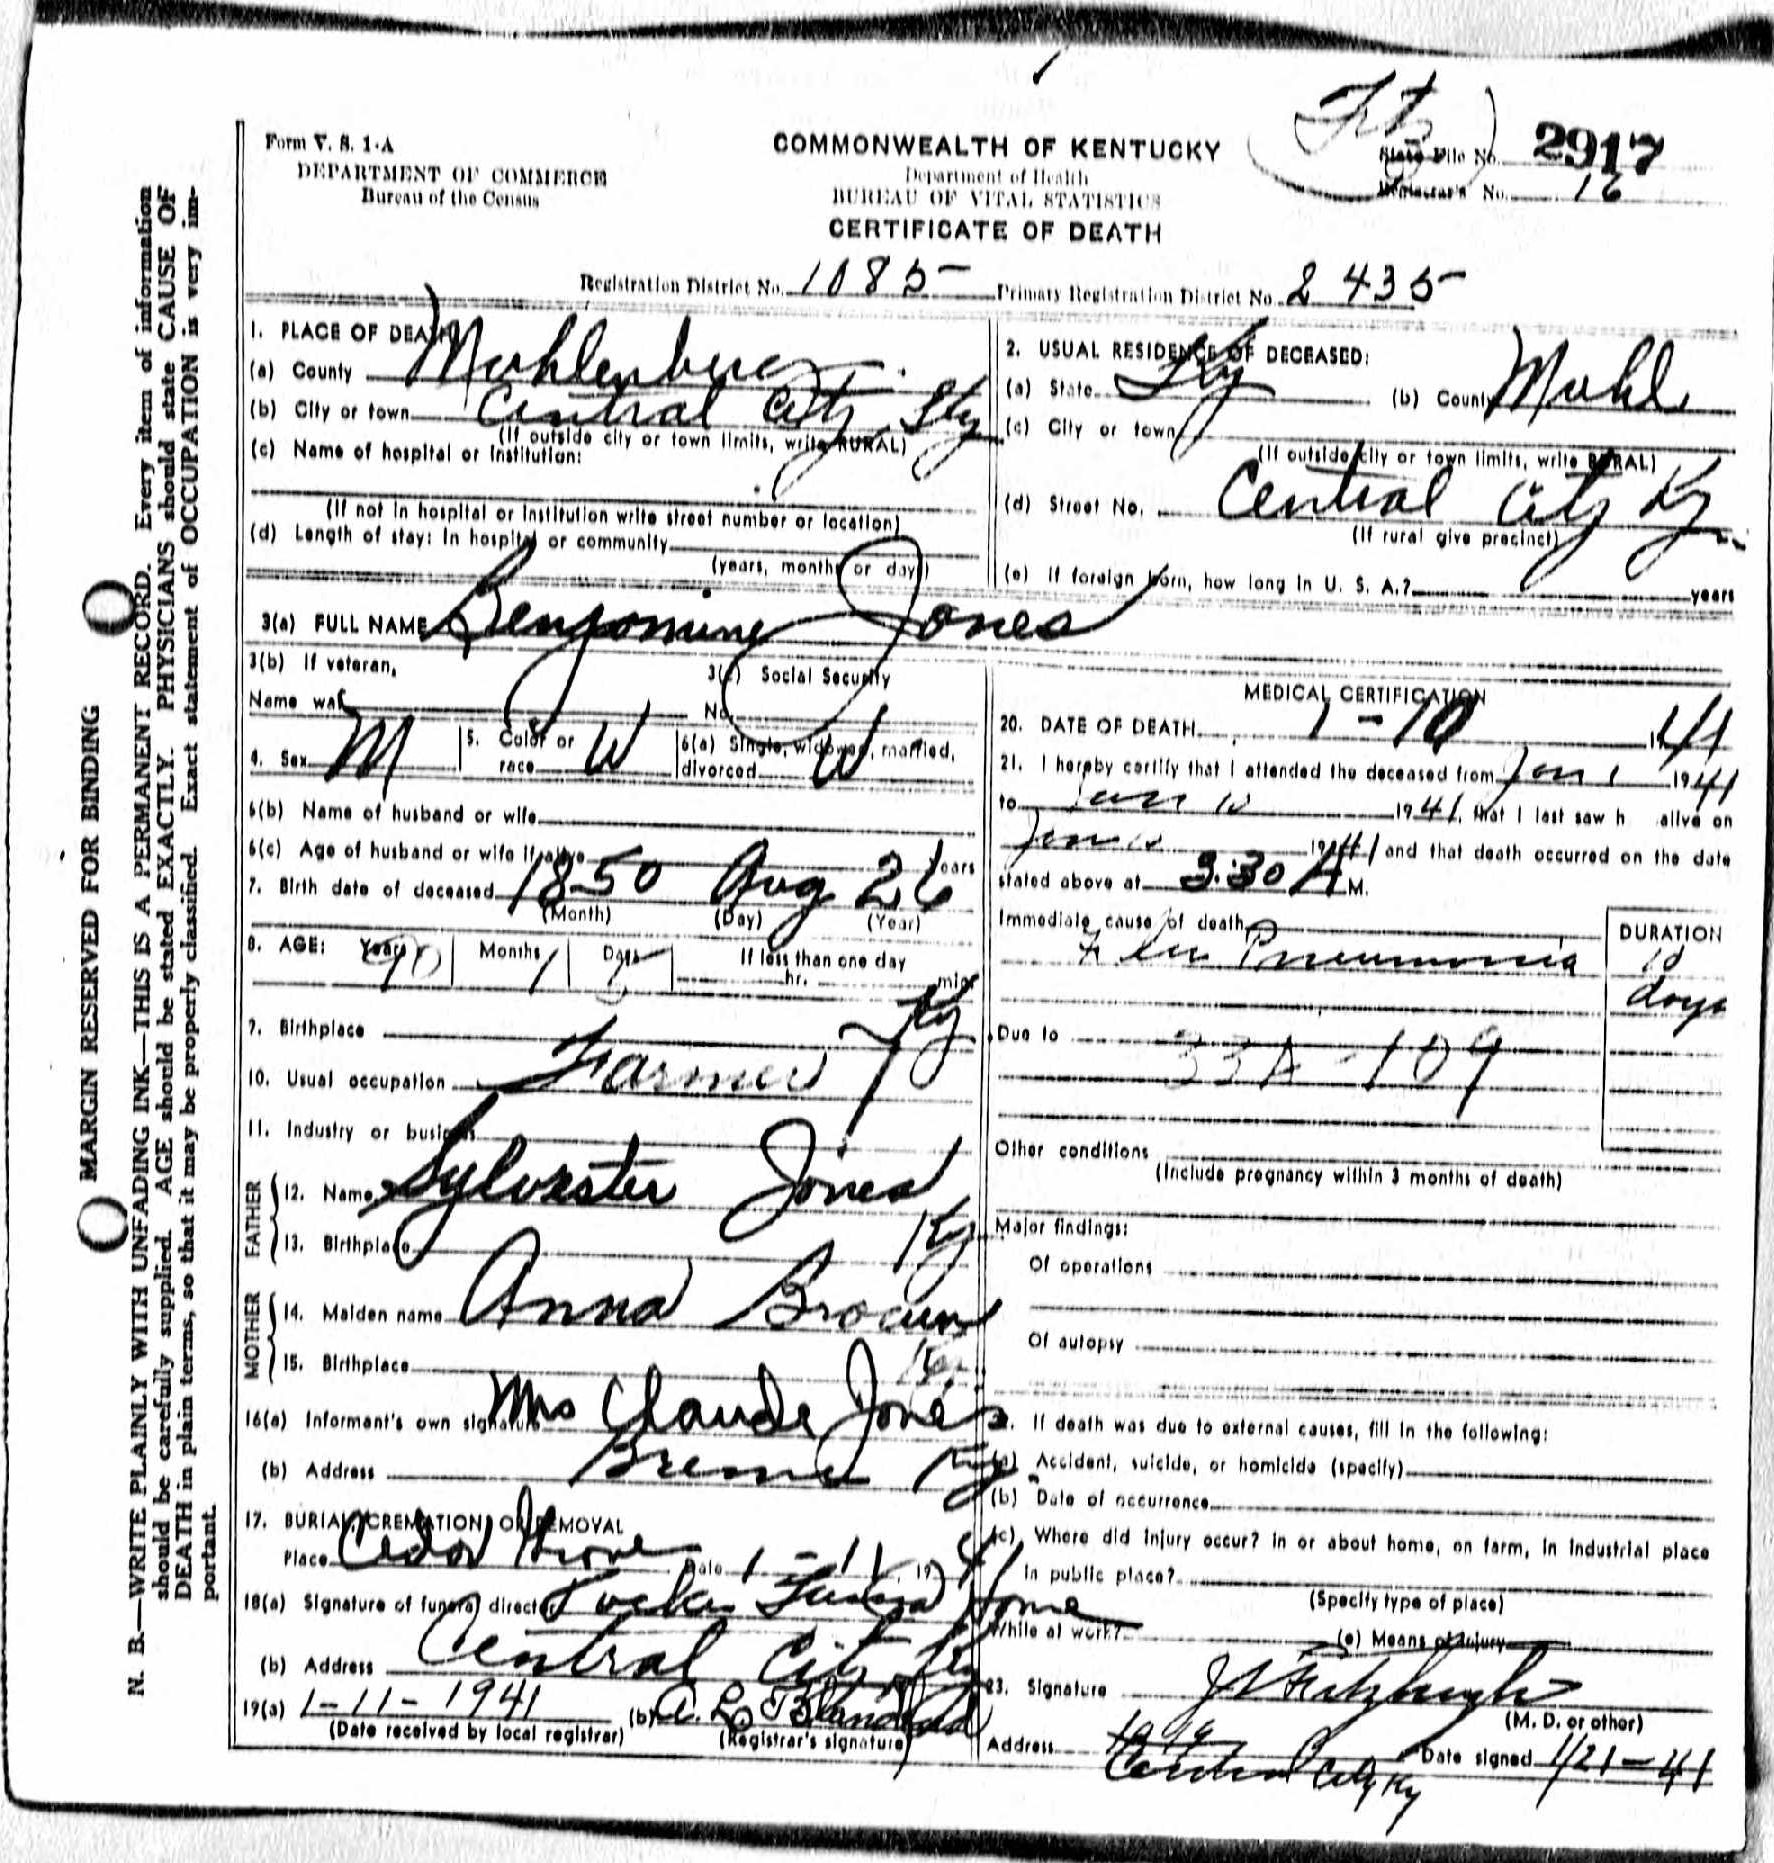 Form V. S. 1-A
DEPARTMENT OF COMMERCE
Bureau of the Census
COMMONWEALTH OF KENTUCKY
Department of Health
BUREAU OF VITAL STATISTICS
CERTIFICATE OF DEATH
State File No. 2917
Registrar's No. 16
Registration District No. 1085 Primary Registration District No. 2435
MARGIN RESERVED FOR BINDING
N. B.—WRITE PLAINLY WITH UNFADING INK—THIS IS A PERMANENT RECORD. Every item of information
should be carefully supplied. AGE should be stated EXACTLY. PHYSICIANS should state CAUSE OF
DEATH in plain terms, so that it may be properly classified. Exact statement of OCCUPATION is very im-
portant.
1. PLACE OF DEATH
(a) County Muhlenberg
(b) City or town Central City, Ky
(If outside city or town limits, write RURAL)
(c) Name of hospital or institution:
(If not in hospital or institution write street number or location)
(d) Length of stay: In hospital or community
(years, months or days)
2. USUAL RESIDENCE OF DECEASED:
(a) State Ky (b) County Muhl
(c) City or town
(If outside city or town limits, write RURAL)
(d) Street No. Central City Ky
(If rural give precinct)
(e) If foreign born, how long in U. S. A.? years
3(a) FULL NAME Benjomine Jones
3(b) If veteran,
Name war
3(c) Social Security
No.
4. Sex M 5. Color or race W 6(a) Single, widowed, married, divorced W
6(b) Name of husband or wife
6(c) Age of husband or wife if alive years
7. Birth date of deceased 1850 Aug 26
(Month) (Day) (Year)
8. AGE: Years 90 Months Days If less than one day
hr. min.
9. Birthplace Ky
10. Usual occupation Farmer
11. Industry or business
FATHER
12. Name Sylvester Jones
13. Birthplace Ky
MOTHER
14. Maiden name Anna Brown
15. Birthplace Ky
16(a) Informant's own signature Mrs Claude Jones
(b) Address Bremen Ky
17. BURIAL, CREMATION, OR REMOVAL
Place Cedar Grove Date 1-11, 1941
18(a) Signature of funeral director Tucker Funeral Home
(b) Address Central City Ky
19(a) 1-11-1941 (b) A. L. Blandford
(Date received by local registrar) (Registrar's signature)
MEDICAL CERTIFICATION
20. DATE OF DEATH 1-10 1941
21. I hereby certify that I attended the deceased from Jan 1 1941
to Jan 10 1941, that I last saw h alive on
Jan 10 1941 and that death occurred on the date
stated above at 3:30 A M.
Immediate cause of death
Flu Pneumonia
DURATION
10
days
Due to 33A-109
Other conditions
(Include pregnancy within 3 months of death)
Major findings:
Of operations
Of autopsy
If death was due to external causes, fill in the following:
(a) Accident, suicide, or homicide (specify)
(b) Date of occurrence
(c) Where did injury occur? in or about home, on farm, in industrial place
in public place?
(Specify type of place)
While at work? (e) Means of injury
23. Signature J W Fitzhugh
(M. D. or other)
Address Central City Ky Date signed 1/21-41